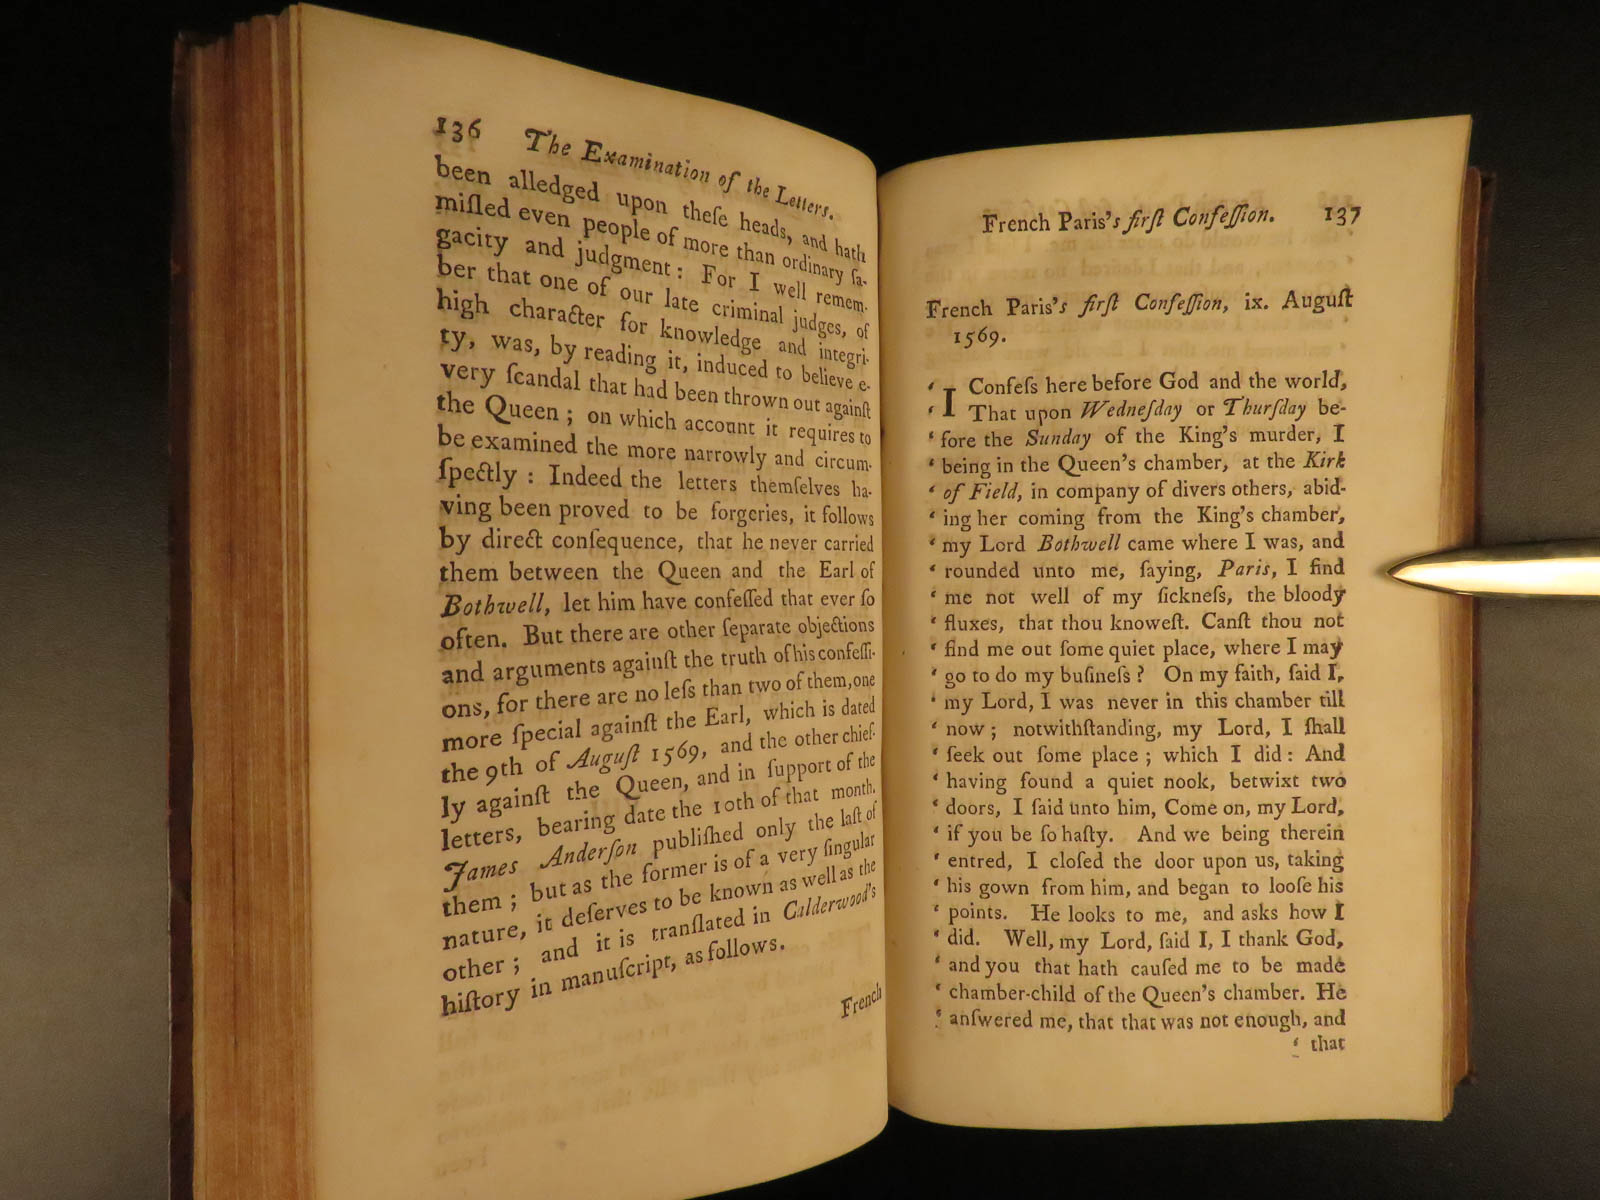 136 The Examination of the Letters.
been alledged upon theſe heads, and hath
miſled even people of more than ordinary ſa-
gacity and judgment: For I well remem-
ber that one of our late criminal judges, of
high character for knowledge and integri-
ty, was, by reading it, induced to believe e-
very ſcandal that had been thrown out againſt
the Queen; on which account it requires to
be examined the more narrowly and circum-
ſpectly: Indeed the letters themſelves ha-
ving been proved to be forgeries, it follows
by direct conſequence, that he never carried
them between the Queen and the Earl of
Bothwell, let him have confeſſed that ever ſo
often. But there are other ſeparate objections
and arguments againſt the truth of his confeſſi-
ons, for there are no leſs than two of them, one
more ſpecial againſt the Earl, which is dated
the 9th of Auguſt 1569, and the other chief-
ly againſt the Queen, and in ſupport of the
letters, bearing date the 10th of that month.
James Anderſon publiſhed only the laſt of
them; but as the former is of a very ſingular
nature, it deſerves to be known as well as the
other; and it is tranſlated in Calderwood's
hiſtory in manuſcript, as follows.
French
French Paris's firſt Confeſſion. 137
French Paris's firſt Confeſſion, ix. Auguſt
1569.
‘ I Confeſs here before God and the world,
‘ That upon Wedneſday or Thurſday be-
‘ fore the Sunday of the King's murder, I
‘ being in the Queen's chamber, at the Kirk
‘ of Field, in company of divers others, abid-
‘ ing her coming from the King's chamber,
‘ my Lord Bothwell came where I was, and
‘ rounded unto me, ſaying, Paris, I find
‘ me not well of my ſickneſs, the bloody
‘ fluxes, that thou knoweſt. Canſt thou not
‘ find me out ſome quiet place, where I may
‘ go to do my buſineſs? On my faith, ſaid I,
‘ my Lord, I was never in this chamber till
‘ now; notwithſtanding, my Lord, I ſhall
‘ ſeek out ſome place; which I did: And
‘ having found a quiet nook, betwixt two
‘ doors, I ſaid unto him, Come on, my Lord,
‘ if you be ſo haſty. And we being therein
‘ entred, I cloſed the door upon us, taking
‘ his gown from him, and began to looſe his
‘ points. He looks to me, and asks how I
‘ did. Well, my Lord, ſaid I, I thank God,
‘ and you that hath cauſed me to be made
‘ chamber-child of the Queen's chamber. He
‘ anſwered me, that that was not enough, and
‘ that